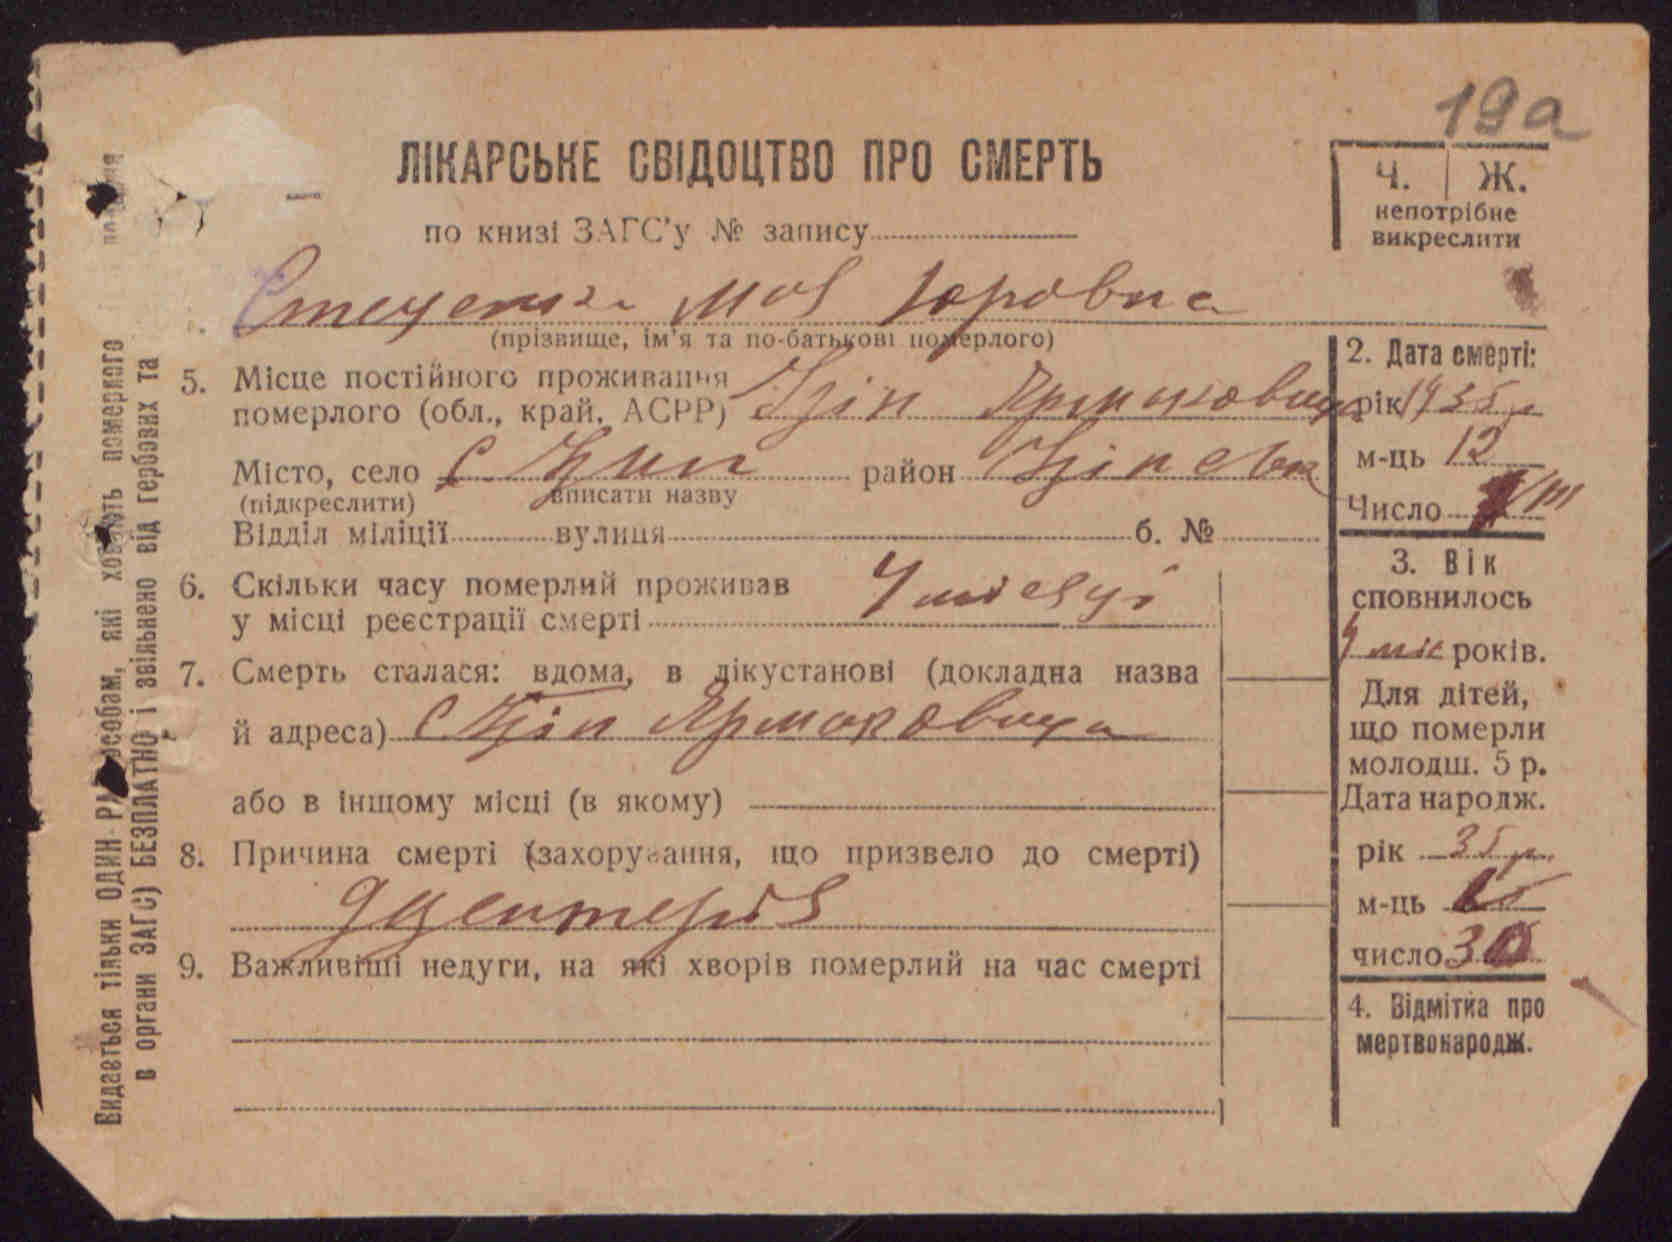 19а
ЛІКАРСЬКЕ СВІДОЦТВО ПРО СМЕРТЬ
по книзі ЗАГС'у № запису
Ч. | Ж.
непотрібне
викреслити
Юровна
(прізвище, ім'я та по-батькові померлого)
5. Місце постійного проживання
померлого (обл., край, АСРР)
Місто, село с район
(підкреслити) вписати назву
Відділ міліції вулиця б. №
6. Скільки часу померлий проживав
у місці реєстрації смерті 4 місяці
7. Смерть сталася: вдома, в лікустанові (докладна назва
й адреса) с
або в іншому місці (в якому)
8. Причина смерті (захорування, що призвело до смерті)
Дизентерія
9. Важливіші недуги, на які хворів померлий на час смерті
2. Дата смерті:
рік 1935 р
м-ць 12
Число
3. Вік
сповнилось
4 міс років.
Для дітей,
що померли
молодш. 5 р.
Дата народж.
рік 35 р
м-ць
число 30
4. Відмітка про
мертвонародж.
Видається тільки ОДИН РАЗ особам, які ховають померлого
в органи ЗАГС) БЕЗПЛАТНО і звільнено від гербових та